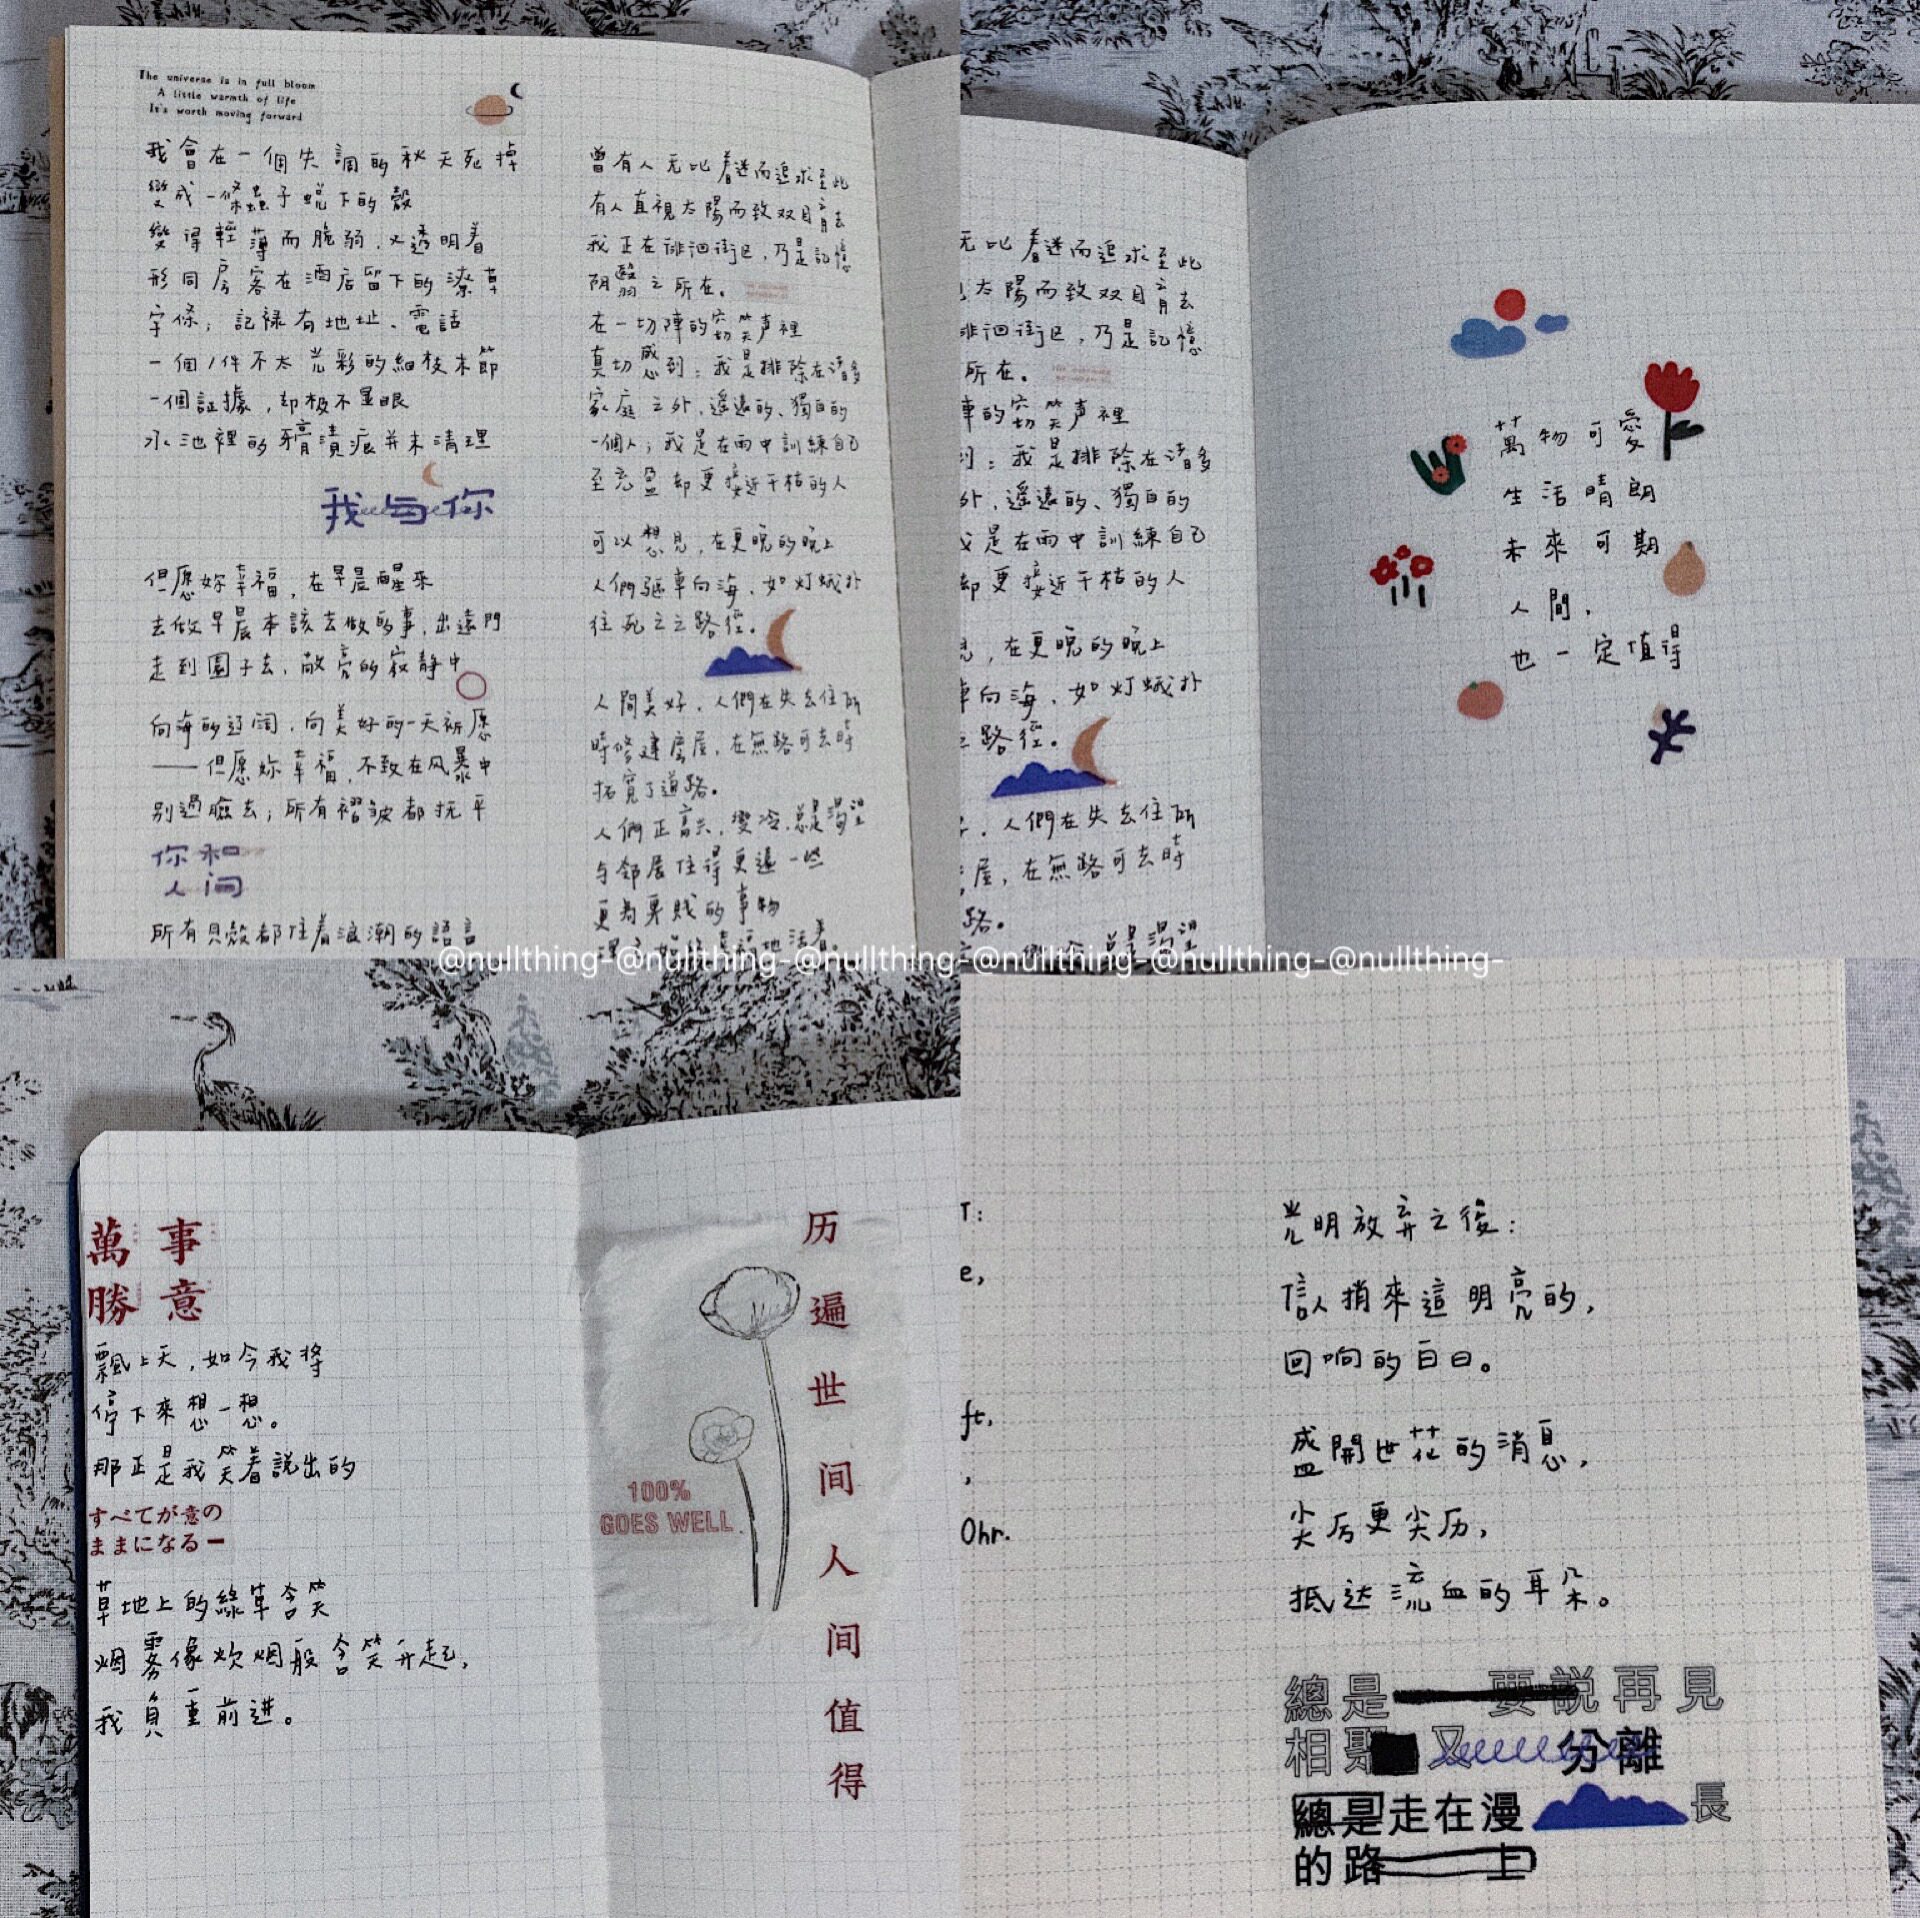 The universe is in full bloom
A little warmth of life
It's worth moving forward
我會在一個失調的秋天死掉
變成一條蟲子蛻下的殼
變得輕薄而脆弱,又透明着
形同房客在酒店留下的潦草
字條;記祿有地址、電話
一個/件不太光彩的細枝末節
一個証據,却极不显眼
水池裡的牙膏漬痕并未清理
我与你
但愿妳幸福,在早晨醒來
去做早晨本該去做的事,出遠門
走到園子去,敞亮的寂静中
向海的辽阔,向美好的一天祈愿
——但愿妳幸福,不致在风暴中
别過臉去;所有褶皱都抚平
你和
人间
所有貝殼都住着浪潮的語言
曾有人无比着迷而追求至此
有人直視太陽而致双目盲去
我正在徘徊街区,乃是記憶
阴翳之所在。
在一切陣的窃笑声裡
真切感到:我是排除在诸多
家庭之外,遥遠的、獨自的
一個人;我是在雨中訓練自己
至充盈却更接近干枯的人
可以想見,在更晚的晚上
人們驅車向海,如灯蛾扑
往死之之路徑。
人間美好,人們在失去住所
時修建房屋,在無路可去時
拓寬了道路。
人們正高尖,變冷,总是渴望
与邻居住得更遠一些
更为栗贱的事物
无比着迷而追求至此
太陽而致双目盲去
徘徊街区,乃是記憶
所在。
陣的窃笑声裡
到:我是排除在诸多
外,遥遠的、獨自的
我是在雨中訓練自己
却更接近干枯的人
見,在更晚的晚上
車向海,如灯蛾扑
之路徑。
,人們在失去住所
房屋,在無路可去時
路。
萬物可愛
生活晴朗
未來可期
人間,
也一定值得
@nullthing-@nullthing-@nullthing-@nullthing-@nullthing-@nullthing-
萬事
勝意
飄上天,如今我将
停下來想一想。
那正是我笑着説出的
すべてが意の
ままになるー
草地上的綠草含笑
烟雾像炊烟般含笑升起,
我負重前进。
历遍世间人间值得
100%
GOES WELL
T:
e,
ft,
,
Ohr.
光明放弃之後:
信人捎來這明亮的,
回响的白日。
盛開世花的消息,
尖厉更尖历,
抵达流血的耳朵。
總是要説再見
相聚又分離
總是走在漫長
的路上